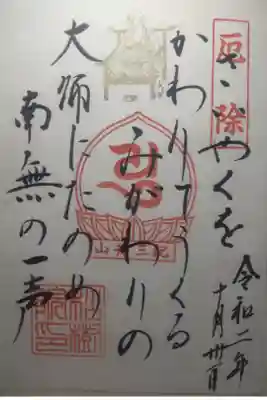 厄除
やくを
かわりてうくる
みがわりの
大師にたのめ
南無の一声
令和二年
十月